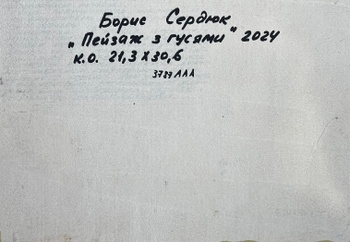 Борис Сердюк
„Пейзаж з гусями" 2024
к.о. 21,3 х 30,6
3727ААА